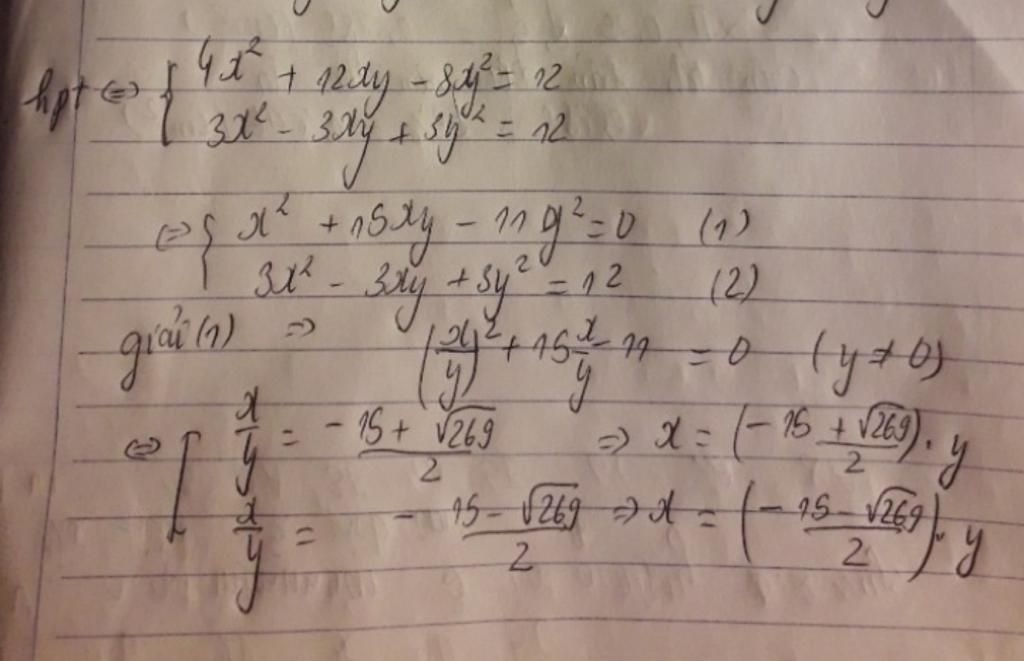 hpt ⇔ { 4x² + 12xy - 8y² = 12
3x² - 3xy + 3y² = 12
⇔ { x² + 15xy - 11y² = 0 (1)
3x² - 3xy + 3y² = 12 (2)
giải (1) ⇒ (x/y)² + 15 x/y - 11 = 0 (y ≠ 0)
⇔ [ x/y = (-15 + √269)/2 ⇒ x = ((-15 + √269)/2) . y
x/y = (-15 - √269)/2 ⇒ x = ((-15 - √269)/2) . y